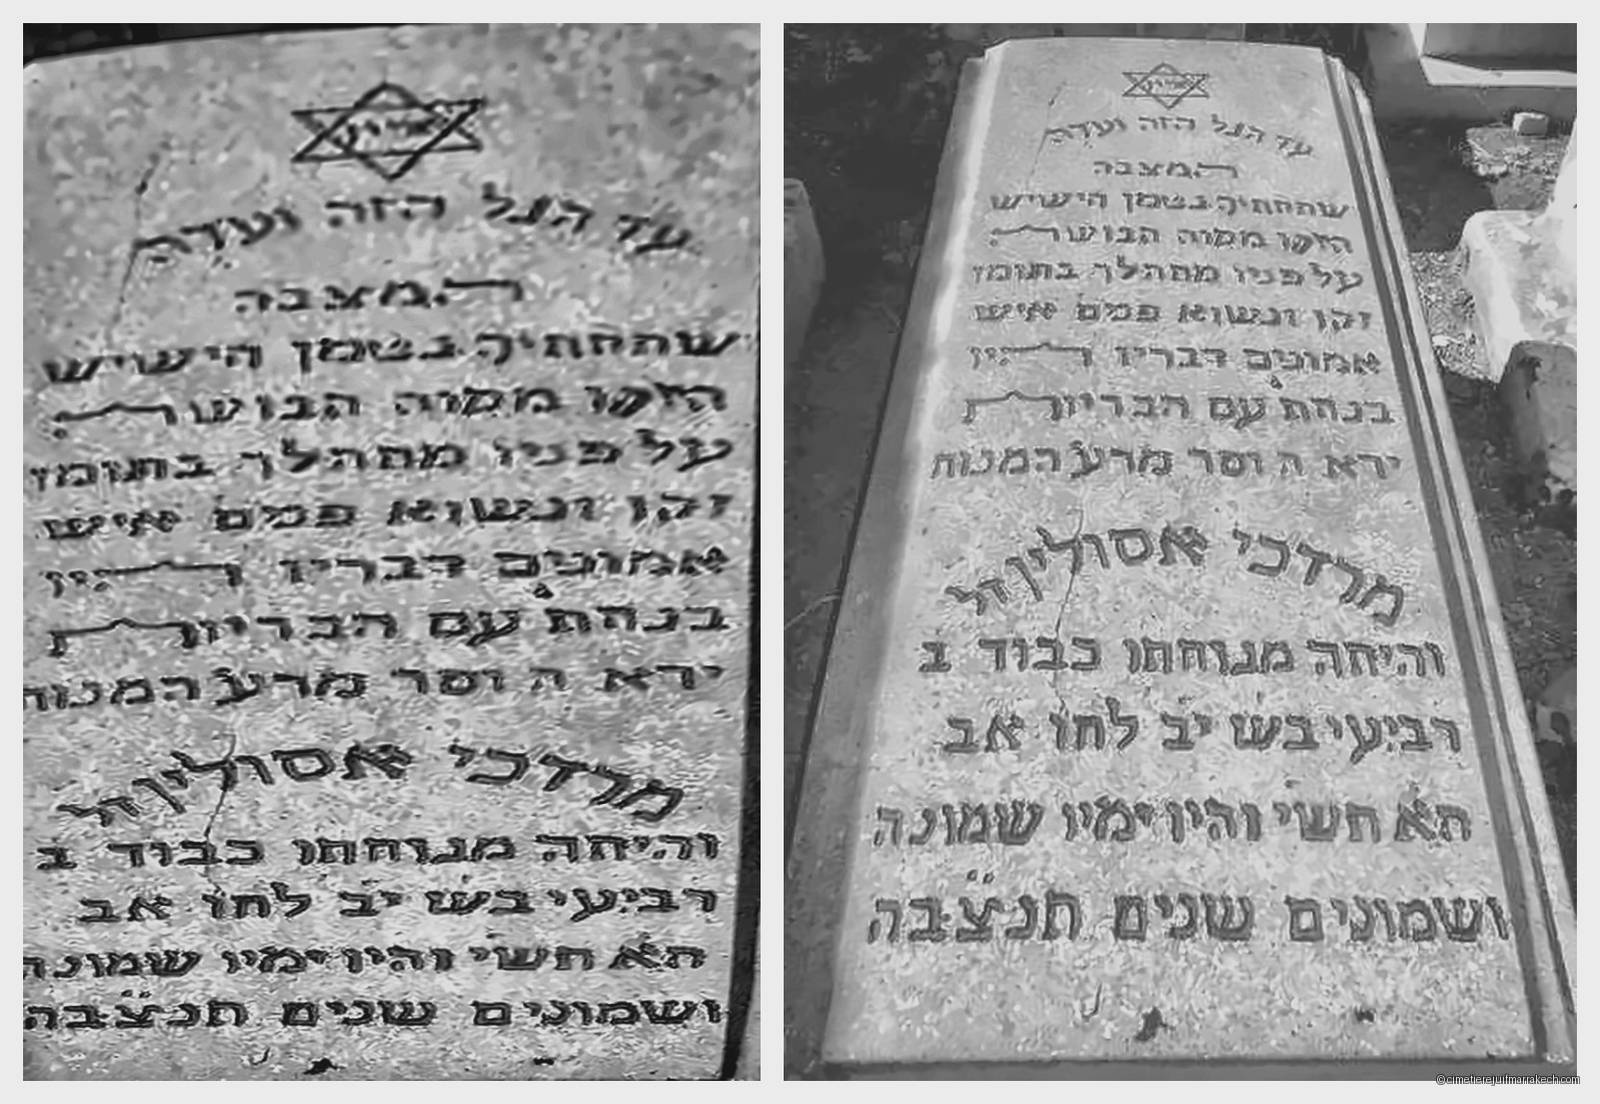 עד הגל הזה ועדה
המצבה
שתחתיה נטמן הישיש
הזקן מסוה הבושת
על פניו מתהלך בתומו
זקן ונשוא פנים איש
אמונים דבריו היו
בנחת עם הבריות
ירא ה וסר מרע המנוח
מרדכי אסולין
והיתה מנוחתו כבוד ב
רביעי בש יב לחו אב
הא תשי והיו ימיו שמונה
ושמונים שנים תנצבה
עד הגל הזה ועדה
המצבה
שתחתיה נטמן הישיש
הזקן מסוה הבושת
על פניו מתהלך בתומו
זקן ונשוא פנים איש
אמונים דבריו היו
בנחת עם הבריות
ירא ה וסר מרע המנוח
מרדכי אסולין
והיתה מנוחתו כבוד ב
רביעי בש יב לחו אב
הא תשי והיו ימיו שמונה
ושמונים שנים תנצבה
©cimetierejuifmarrakech.com